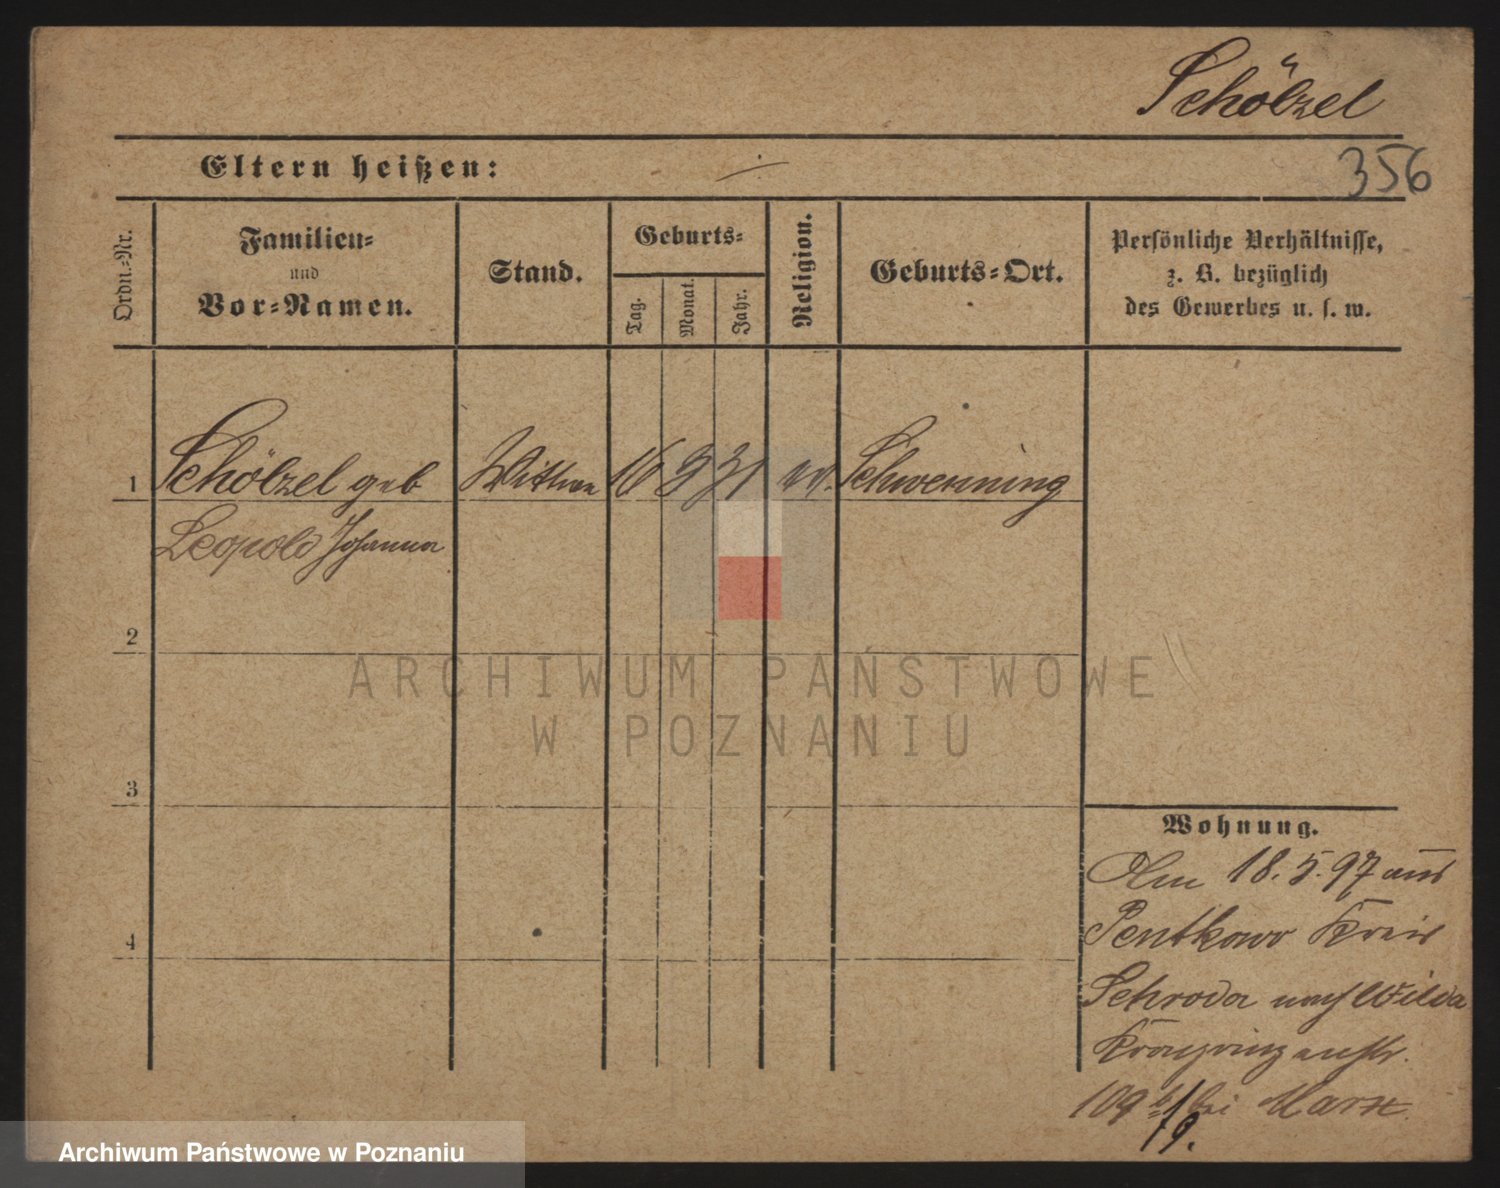 Schölzel
Eltern heißen:
356
Ordn.-Nr.
Familien-
und
Vor-Namen.
Stand.
Geburts-
Tag.
Monat.
Jahr.
Religion.
Geburts-Ort.
Persönliche Verhältnisse,
z. B. bezüglich
des Gewerbes u. s. w.
1 Schölzel geb Wittwe 16 3 31 ev. Schwersning
Leopold Johanna
2
3
4
ARCHIWUM PAŃSTWOWE
W POZNANIU
Wohnung.
Am 18.5.97 aus
Pentkowo Kreis
Schroda nach Wilda
Kronprinzenstr.
109 bei Marx
Archiwum Państwowe w Poznaniu